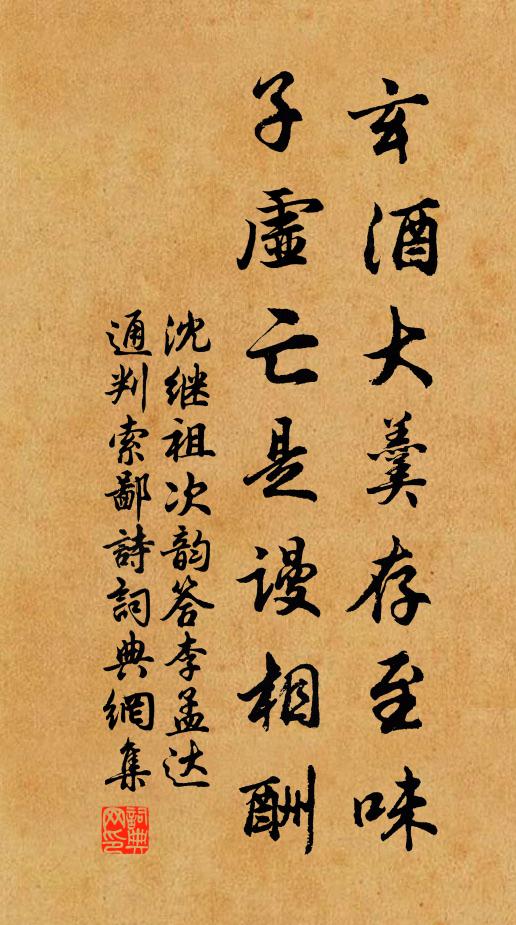 玄酒大羹存至味
子虚亡是谩相酬
沈继祖次韵答李孟达
通判索鄙詩詞典網集
詞典网印